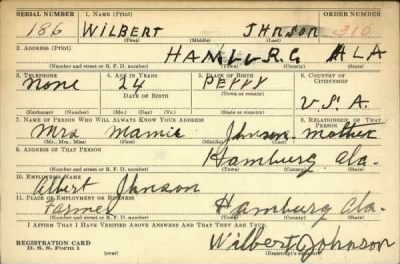 SERIAL NUMBER 1. NAME (Print) ORDER NUMBER
186 WILBERT JHNSON 310
(First) (Middle) (Last)
2. ADDRESS (Print)
HAMBURG ALA
(Number and street or R. F. D. number) (Town) (County) (State)
3. TELEPHONE 4. AGE IN YEARS 5. PLACE OF BIRTH 6. COUNTRY OF CITIZENSHIP
None 24 PERRY
DATE OF BIRTH (Town or county)
U.S.A.
(Exchange) (Number) (Mo.) (Day) (Yr.) (State or country)
7. NAME OF PERSON WHO WILL ALWAYS KNOW YOUR ADDRESS 8. RELATIONSHIP OF THAT PERSON
Mrs Mamie Jhnson mother
(Mr., Mrs., Miss) (First) (Middle) (Last)
9. ADDRESS OF THAT PERSON
Hamburg Ala.
(Number and street or R. F. D. number) (Town) (County) (State)
10. EMPLOYER'S NAME
Albert Jhnson
11. PLACE OF EMPLOYMENT OR BUSINESS
Farmer Hamburg Ala.
(Number and street or R. F. D. number) (Town) (County) (State)
I AFFIRM THAT I HAVE VERIFIED ABOVE ANSWERS AND THAT THEY ARE TRUE.
REGISTRATION CARD
D. S. S. Form 1 (over) Wilbert Johnson
(Registrant's signature)